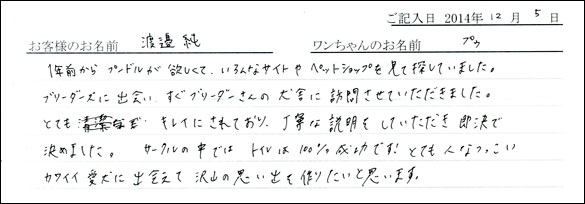 ご記入日 2014年 12 月 5 日
お客様のお名前 渡邉 純 ワンちゃんのお名前 プゥ
1年前から プードルが欲しくて、いろんなサイトや ペットショップを見て探していました。
ブリーダーズに出会い、すぐブリーダーさんの犬舎に訪問させていただきました。
とても キレイにされており、丁寧な説明をしていただき 即決で
決めました。 サークルの中では トイレは100%成功です! とても人なつっこい
カワイイ愛犬に出会えて 沢山の思い出を作りたいと思います。